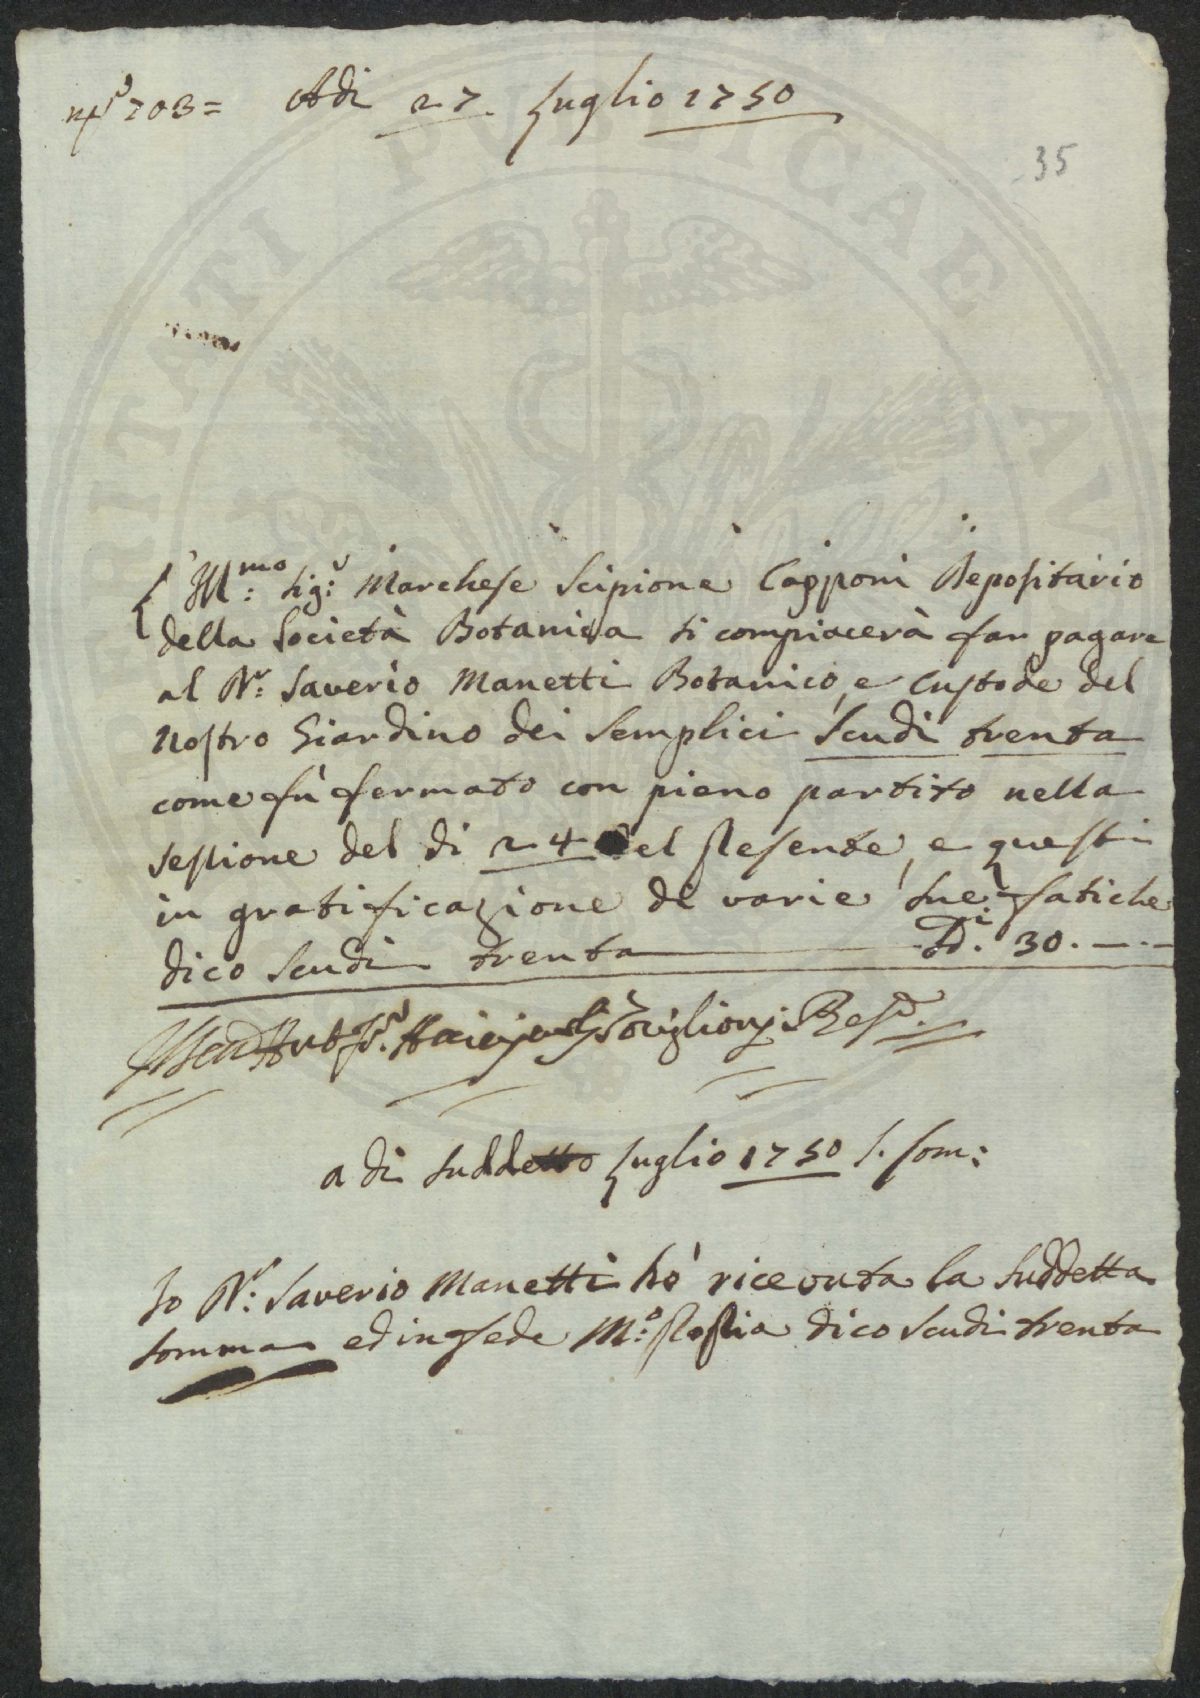 n° 703 = Adi 27. Luglio 1750
35
Ill.mo Sig.r Marchese Scipione Capponi Depositario
della Società Botanica si compiacerà far pagare
al D.r Saverio Manetti Botanico, e Custode del
nostro Giardino dei Semplici Scudi trenta
come fù fermato con pieno partito nella
sessione del di 24 del presente, e questi
in gratificazione di varie sue fatiche
dico scudi trenta 30. —
a di suddetto Luglio 1750 s. Com:
Io D.r Saverio Manetti hò ricevuta la suddetta
somma ed in fede M.o propria dico scudi trenta
VTILITATI PVBLICAE AV